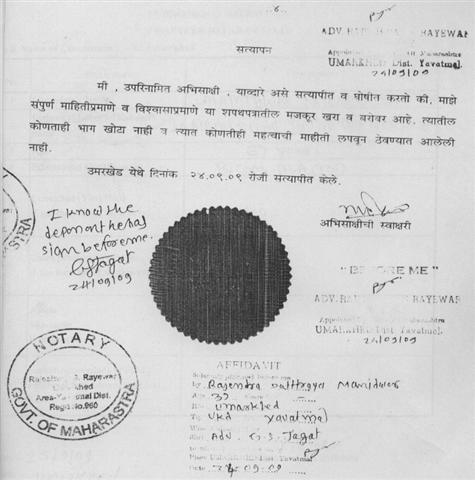 -४-
ADV. RAJ RAYEWAR
UMARKHED Dist. Yavatmal.
24/09/09
सत्यापन
मी , उपरिनामित अभिसाक्षी , याव्दारे असे सत्यापीत व घोषीत करतो की, माझे
संपुर्ण माहितीप्रमाणे व विश्वासाप्रमाणे या शपथपत्रातील मजकूर खरा व बरोबर आहे. त्यातील
कोणताही भाग खोटा नाही व त्यात कोणतीही महत्वाची माहीती लपवून ठेवण्यात आलेली
नाही.
उमरखेड येथे दिनांक २४.०९.०९ रोजी सत्यापीत केले.
अभिसाक्षीची स्वाक्षरी
I know the
deponent he has
sign before me.
24/09/09
"BEFORE ME"
ADV. RAYEWAR
UMARKHED Dist Yavatmal.
24/09/09
NOTARY
Rayewar
Umarkhed
Area-Yavatmal Dist.
Regd.No.960
GOVT. OF MAHARASTRA
AFFIDAVIT
by Rajendra Dattraya
Age 32
R/o Umarkhed
Tq. Ukd Yavatmal
Adv. G.S. Jagat
Date 24.09.09
ASTRA